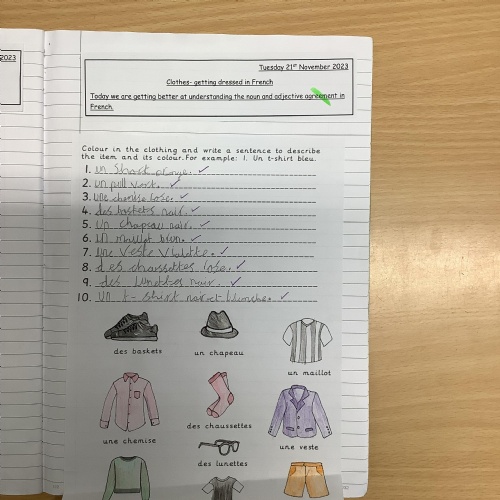 2023
Tuesday 21st November 2023
Clothes- getting dressed in French
Today we are getting better at understanding the noun and adjective agreement in
French.
Colour in the clothing and write a sentence to describe
the item and its colour. For example: 1. Un t-shirt bleu.
1. un short orange.
2. un pull vert.
3. une chemise rose.
4. des baskets noir.
5. un chapeau noir.
6. un maillot
7. une veste violette.
8. des chaussettes rose.
9. des lunettes noir.
10. un t-shirt noir et
des baskets
un chapeau
un maillot
une chemise
des chaussettes
une veste
des lunettes